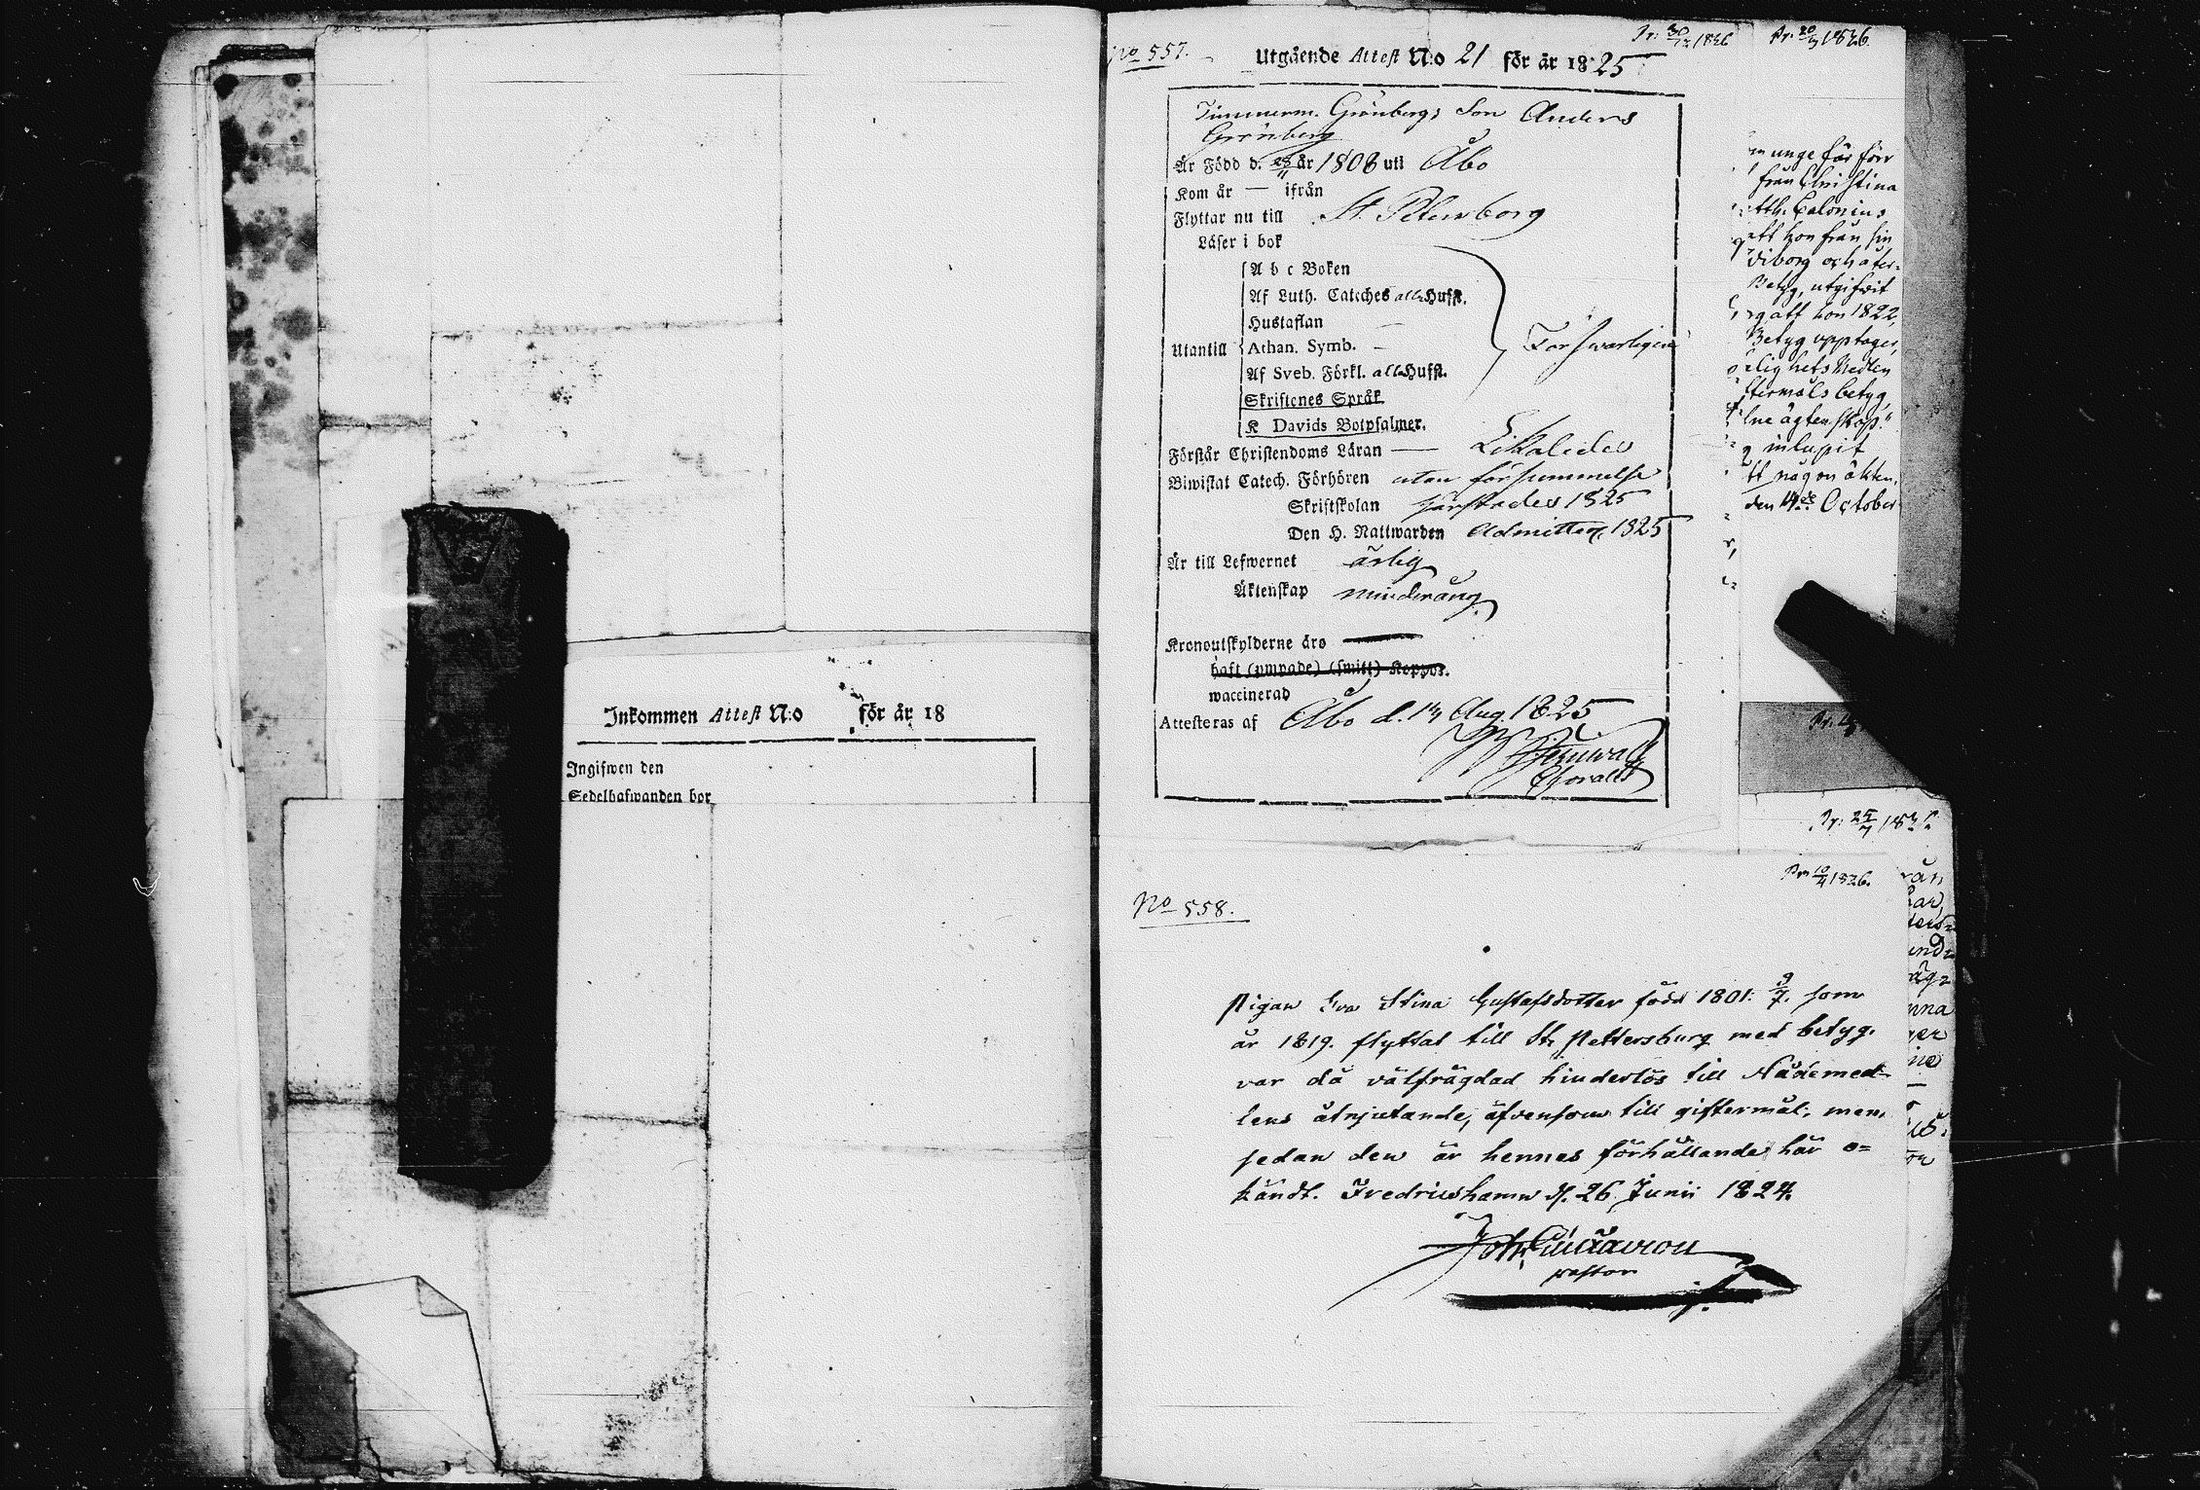 Inkommen Attest N:o för år 18
Ingifwen den
Sedelhafwanden bor
No 557.
Utgående Attest N:o 21 för år 1825
Pr: 30/12 1826
Pr. 20/3 1826.
Timmerm. Grönbergs Son Anders
Grönberg
Är Född d. 28/11 år 1808 uti Åbo
Kom år — ifrån
Flyttar nu till St. Petersborg
Läser i bok
A b c Boken
Af Luth. Cateches all. Hufst.
Hustaflan —
Utantill Athan. Symb. —
Af Sveb. Förkl. all. Hufst.
Skriftenes Språk
K Davids Botpsalmer.
Försvarligen
Förstår Christendoms Läran — Likaledes
Biwistat Catech. Förhören utan försummelse
Skriftskolan 1825
Den H. Nattwarden Admitteq. 1825
Är till Lefwernet ärlig
Äktenskap minderårig
Kronoutskylderne äro
haft (ympade) (smitt) Koppor.
waccinerad
Attesteras af Åbo d. 17 Aug. 1825
unge för förr
från Christina
tth. Calonius
ett hon från sin
Wiborg och åter-
Betyg, utgifvit
att hon 1822,
Betyg opptager,
lighets Medlen
termåls betyg,
lne ägtenskap."
g inlupit
tt någon äkten-
den 14de October
Pr: 25/7 182
Pr. 10/4 1826.
No 558.
Pigan Eva Stina Gustafsdotter född 1801. 9/7. som
år 1819. flyttat till St. Pettersburg med betyg.
var då välfrägdad hinderlös till Nådemed-
lens åtnjutande, äfvensom till giftermål; men
sedan den är hennes förhållande här o=
kändt. Fredricshamn d. 26 Junii 1824.
pastor